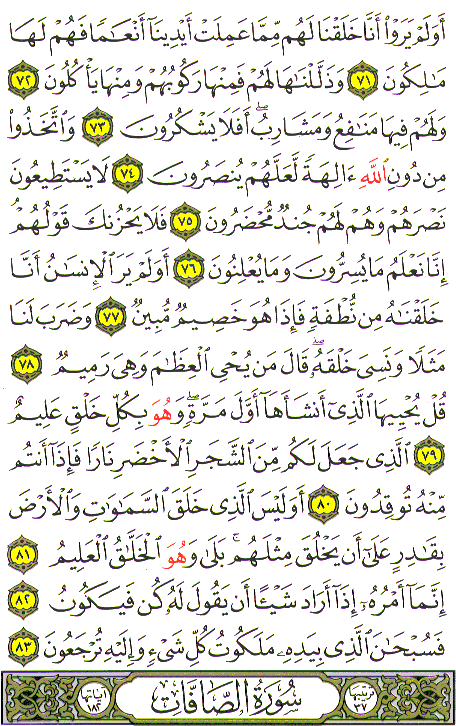 أَوَلَمْ يَرَوْا۟ أَنَّا خَلَقْنَا لَهُم مِّمَّا عَمِلَتْ أَيْدِينَآ أَنْعَـٰمًا فَهُمْ لَهَا
مَـٰلِكُونَ ٧١ وَذَلَّلْنَـٰهَا لَهُمْ فَمِنْهَا رَكُوبُهُمْ وَمِنْهَا يَأْكُلُونَ ٧٢
وَلَهُمْ فِيهَا مَنَـٰفِعُ وَمَشَارِبُ ۖ أَفَلَا يَشْكُرُونَ ٧٣ وَٱتَّخَذُوا۟
مِن دُونِ ٱللَّهِ ءَالِهَةً لَّعَلَّهُمْ يُنصَرُونَ ٧٤ لَا يَسْتَطِيعُونَ
نَصْرَهُمْ وَهُمْ لَهُمْ جُندٌ مُّحْضَرُونَ ٧٥ فَلَا يَحْزُنكَ قَوْلُهُمْ
إِنَّا نَعْلَمُ مَا يُسِرُّونَ وَمَا يُعْلِنُونَ ٧٦ أَوَلَمْ يَرَ ٱلْإِنسَـٰنُ أَنَّا
خَلَقْنَـٰهُ مِن نُّطْفَةٍ فَإِذَا هُوَ خَصِيمٌ مُّبِينٌ ٧٧ وَضَرَبَ لَنَا
مَثَلًا وَنَسِىَ خَلْقَهُۥ ۖ قَالَ مَن يُحْىِ ٱلْعِظَـٰمَ وَهِىَ رَمِيمٌ ٧٨
قُلْ يُحْيِيهَا ٱلَّذِىٓ أَنشَأَهَآ أَوَّلَ مَرَّةٍ ۖ وَهُوَ بِكُلِّ خَلْقٍ عَلِيمٌ
٧٩ ٱلَّذِى جَعَلَ لَكُم مِّنَ ٱلشَّجَرِ ٱلْأَخْضَرِ نَارًا فَإِذَآ أَنتُم
مِّنْهُ تُوقِدُونَ ٨٠ أَوَلَيْسَ ٱلَّذِى خَلَقَ ٱلسَّمَـٰوَٰتِ وَٱلْأَرْضَ
بِقَـٰدِرٍ عَلَىٰٓ أَن يَخْلُقَ مِثْلَهُم ۚ بَلَىٰ وَهُوَ ٱلْخَلَّـٰقُ ٱلْعَلِيمُ ٨١
إِنَّمَآ أَمْرُهُۥٓ إِذَآ أَرَادَ شَيْـًٔا أَن يَقُولَ لَهُۥ كُن فَيَكُونُ ٨٢
فَسُبْحَـٰنَ ٱلَّذِى بِيَدِهِۦ مَلَكُوتُ كُلِّ شَىْءٍ وَإِلَيْهِ تُرْجَعُونَ ٨٣
ترتيبها ٣٧ سُورَةُ ٱلصَّافَّاتِ آياتها ١٨٢